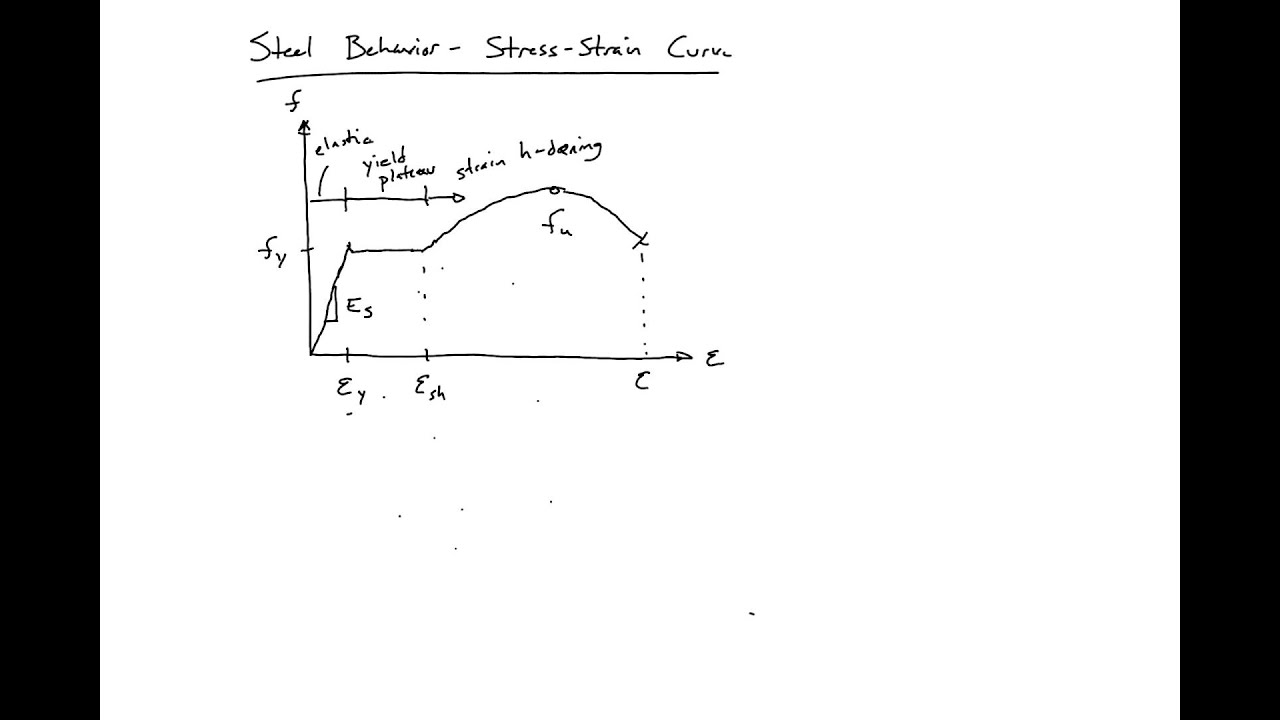 Steel Behavior - Stress-Strain Curve
f
elastic
yield
plateau
strain h-dening
fu
fy
Es
ε
εy
εsh
ε